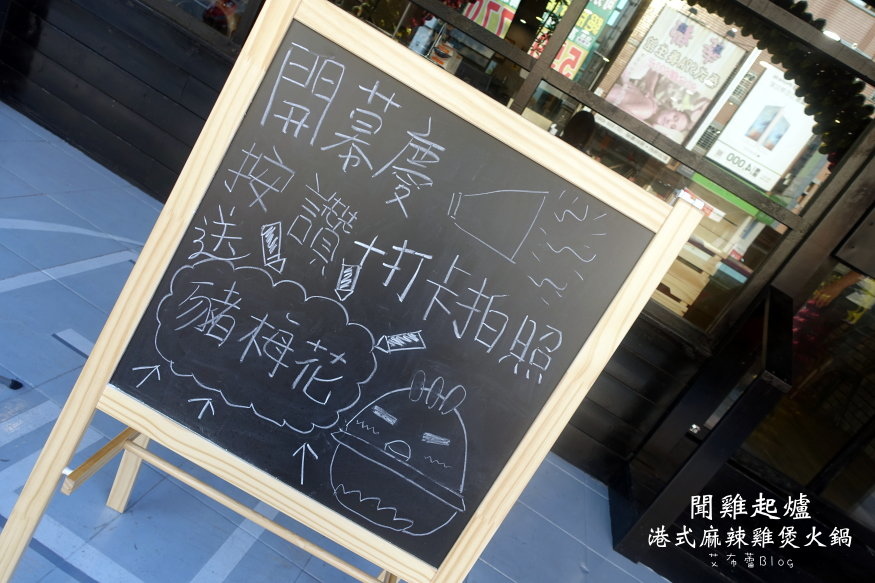 開幕慶
按讚+打卡拍照
送
豬梅花
4,000
聞雞起爐
港式麻辣雞煲火鍋
艾布蕾Blog